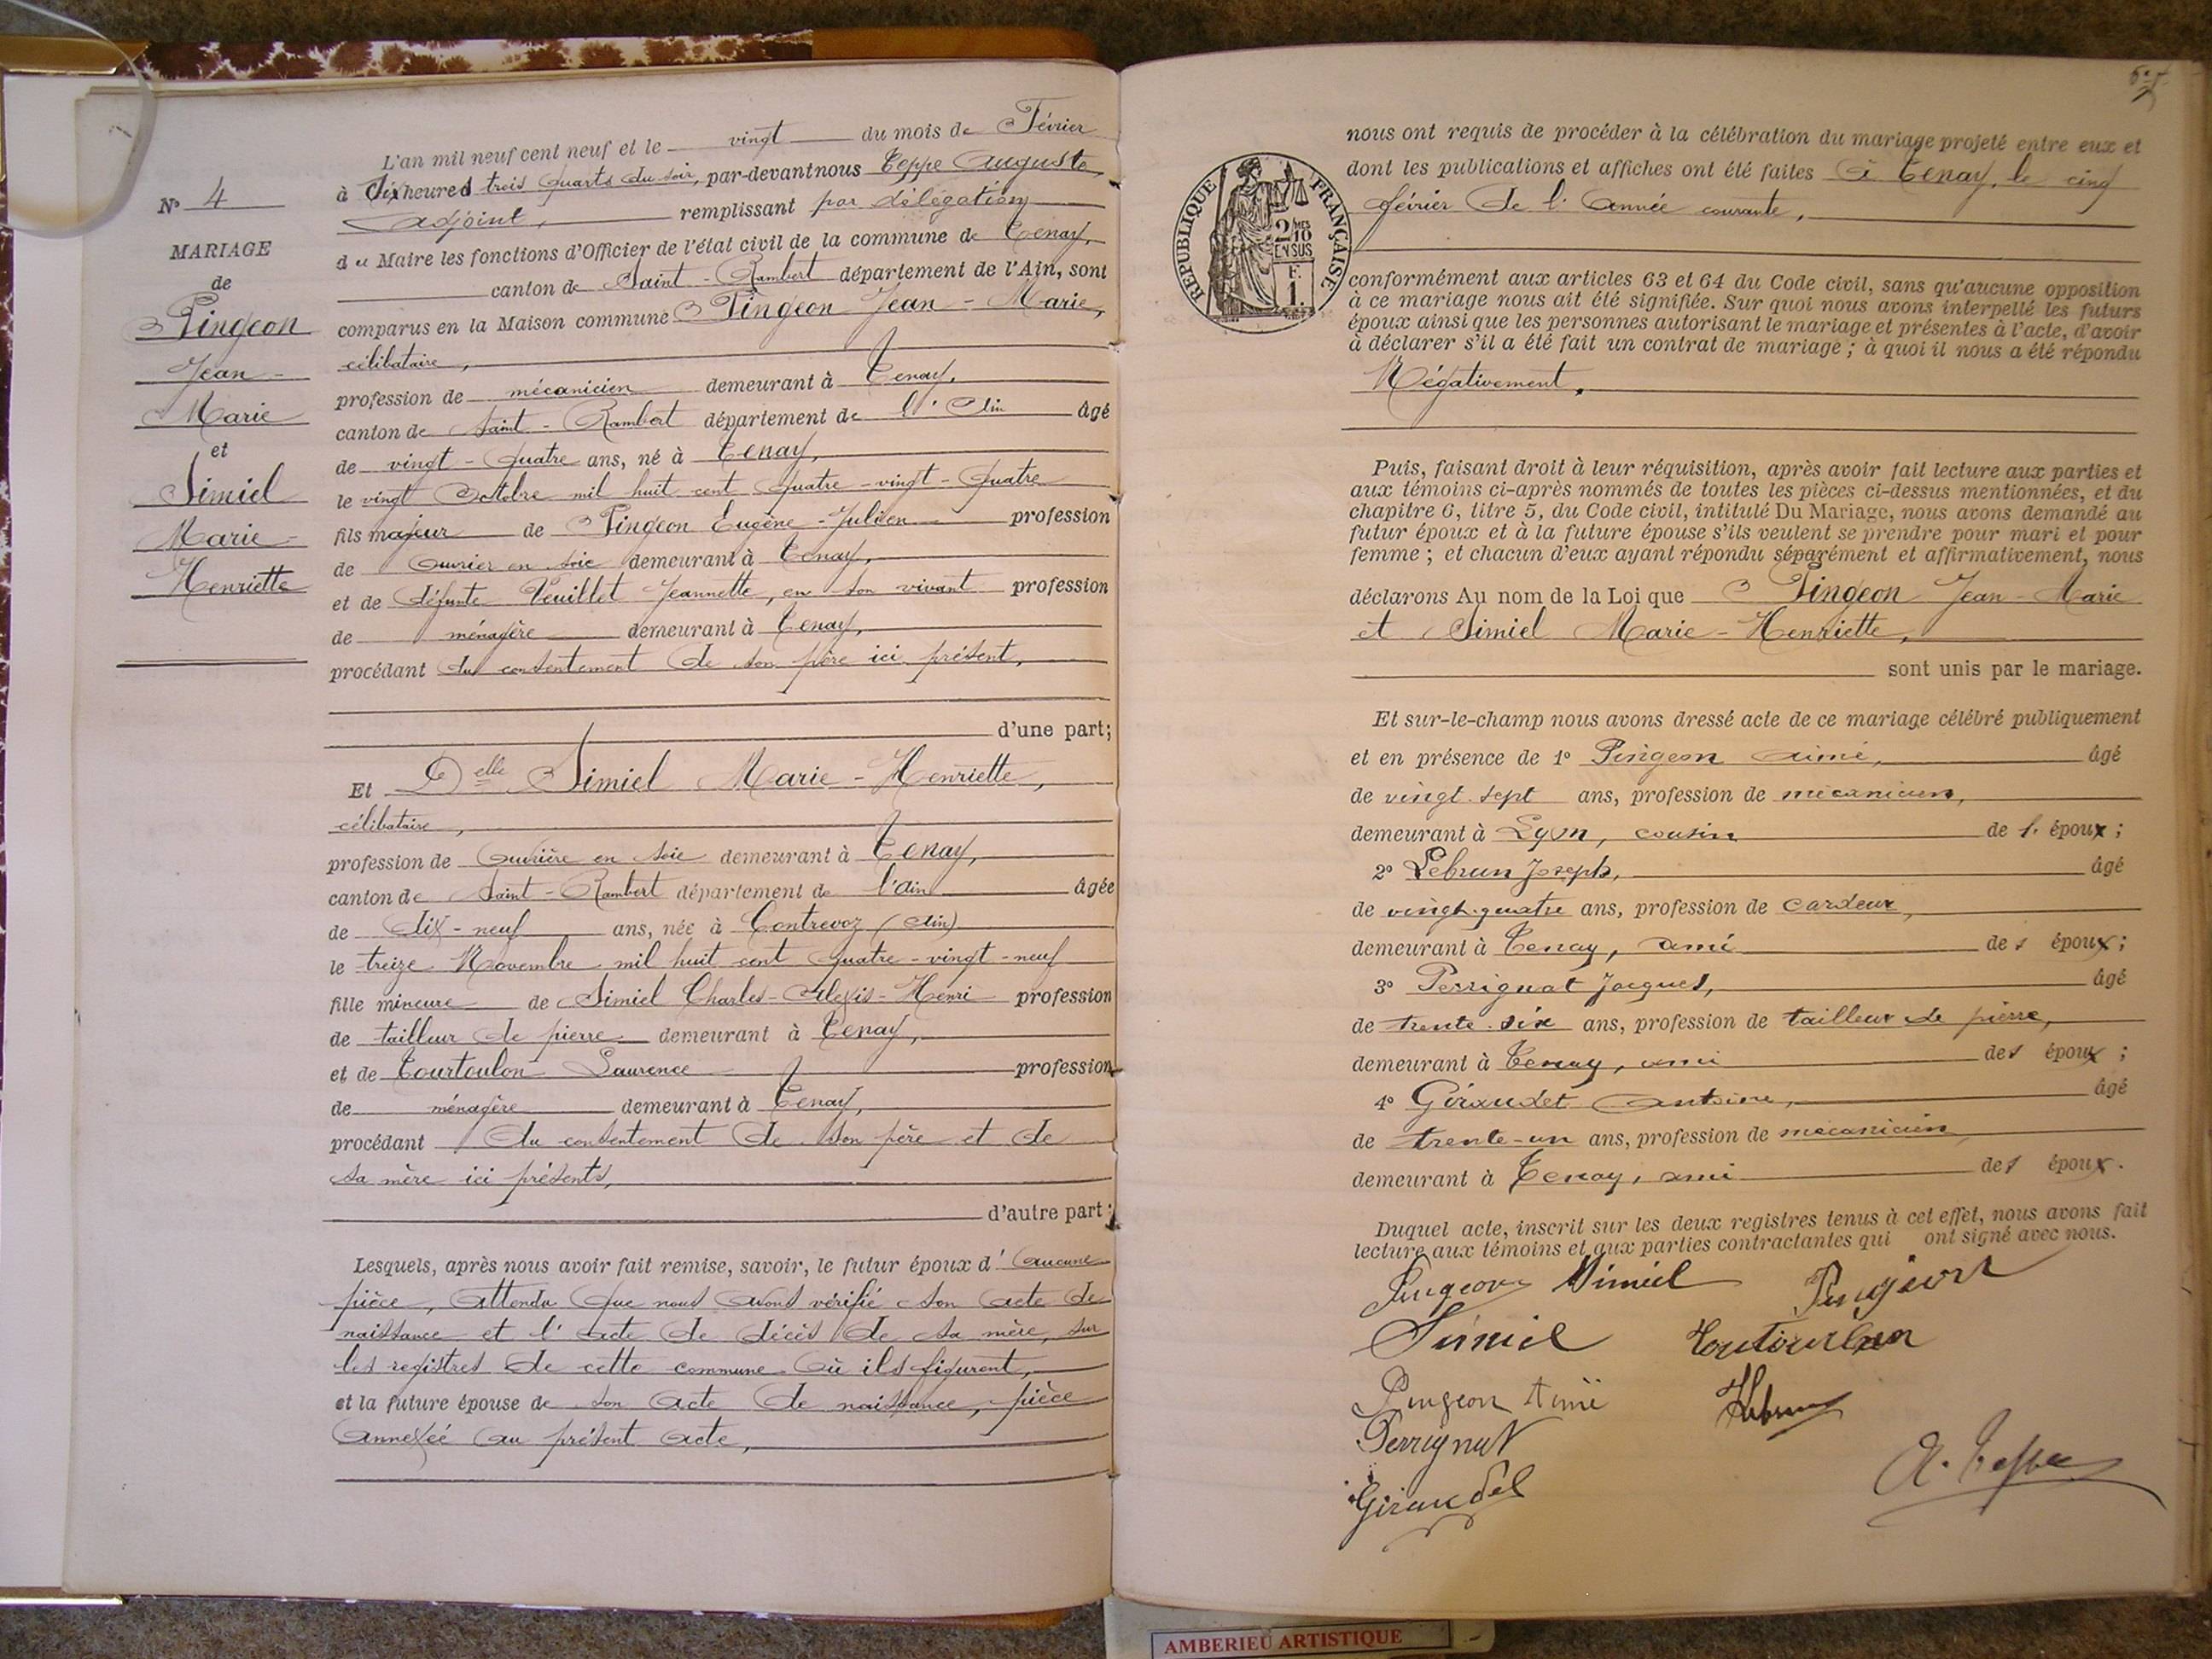 L'an mil neuf cent neuf et le vingt du mois de Février
à Six heures trois quarts du soir, par-devant nous Teppe Auguste,
adjoint, remplissant par délégation
du Maire les fonctions d'Officier de l'état civil de la commune de Tenay,
canton de Saint-Rambert département de l'Ain, sont
comparus en la Maison commune Pingeon Jean-Marie,
célibataire,
profession de mécanicien demeurant à Tenay,
canton de Saint-Rambert département de l'Ain âgé
de vingt-quatre ans, né à Tenay,
le vingt Octobre mil huit cent quatre-vingt-quatre
fils majeur de Pingeon Eugène-Julien profession
de Ouvrier en soie demeurant à Tenay,
et de défunte Veuillet Jeannette, en son vivant profession
de ménagère demeurant à Tenay,
procédant du consentement de son père ici présent,
d'une part;
Et Delle Simiel Marie-Henriette,
célibataire,
profession de Ouvrière en soie demeurant à Tenay,
canton de Saint-Rambert département de l'Ain âgée
de dix-neuf ans, née à Contrevoz (Ain)
le treize Novembre mil huit cent quatre-vingt-neuf
fille mineure de Simiel Charles-Alexis-Henri profession
de tailleur de pierre demeurant à Tenay,
et de Tourtoulon Laurence profession
de ménagère demeurant à Tenay,
procédant du consentement de son père et de
sa mère ici présents,
d'autre part;
Lesquels, après nous avoir fait remise, savoir, le futur époux d'aucune
pièce, attendu que nous avons vérifié son acte de
naissance et l'acte de décès de sa mère, sur
les registres de cette commune où ils figurent,
et la future épouse de son acte de naissance, pièce
annexée au présent acte,
N° 4
MARIAGE
de
Pingeon
Jean-
Marie
et
Simiel
Marie-
Henriette
nous ont requis de procéder à la célébration du mariage projeté entre eux et
dont les publications et affiches ont été faites à Tenay, le cinq
février de l'année courante,
RÉPUBLIQUE FRANÇAISE
2/10MES
EN SUS
F.
1.
conformément aux articles 63 et 64 du Code civil, sans qu'aucune opposition
à ce mariage nous ait été signifiée. Sur quoi nous avons interpellé les futurs
époux ainsi que les personnes autorisant le mariage et présentes à l'acte, d'avoir
à déclarer s'il a été fait un contrat de mariage; à quoi il nous a été répondu
Négativement.
Puis, faisant droit à leur réquisition, après avoir fait lecture aux parties et
aux témoins ci-après nommés de toutes les pièces ci-dessus mentionnées, et du
chapitre 6, titre 5, du Code civil, intitulé Du Mariage, nous avons demandé au
futur époux et à la future épouse s'ils veulent se prendre pour mari et pour
femme; et chacun d'eux ayant répondu séparément et affirmativement, nous
déclarons Au nom de la Loi que Pingeon Jean-Marie
et Simiel Marie-Henriette,
sont unis par le mariage.
Et sur-le-champ nous avons dressé acte de ce mariage célébré publiquement
et en présence de 1° Pingeon Aimé, âgé
de vingt-sept ans, profession de mécanicien,
demeurant à Lyon, cousin de l'époux;
2° Lebrun Joseph, âgé
de vingt-quatre ans, profession de cardeur,
demeurant à Tenay, ami des époux;
3° Perrignat Jacques, âgé
de trente-six ans, profession de tailleur de pierre,
demeurant à Tenay, ami des époux;
4° Giraudet Antoine, âgé
de trente-un ans, profession de mécanicien
demeurant à Tenay, ami des époux.
Duquel acte, inscrit sur les deux registres tenus à cet effet, nous avons fait
lecture aux témoins et aux parties contractantes qui ont signé avec nous.
Pingeon Simiel Pingeon
Simiel Tourtoulon
Pingeon Aimé Lebrun
Perrignat
Giraudet A. Teppe
AMBERIEU ARTISTIQUE